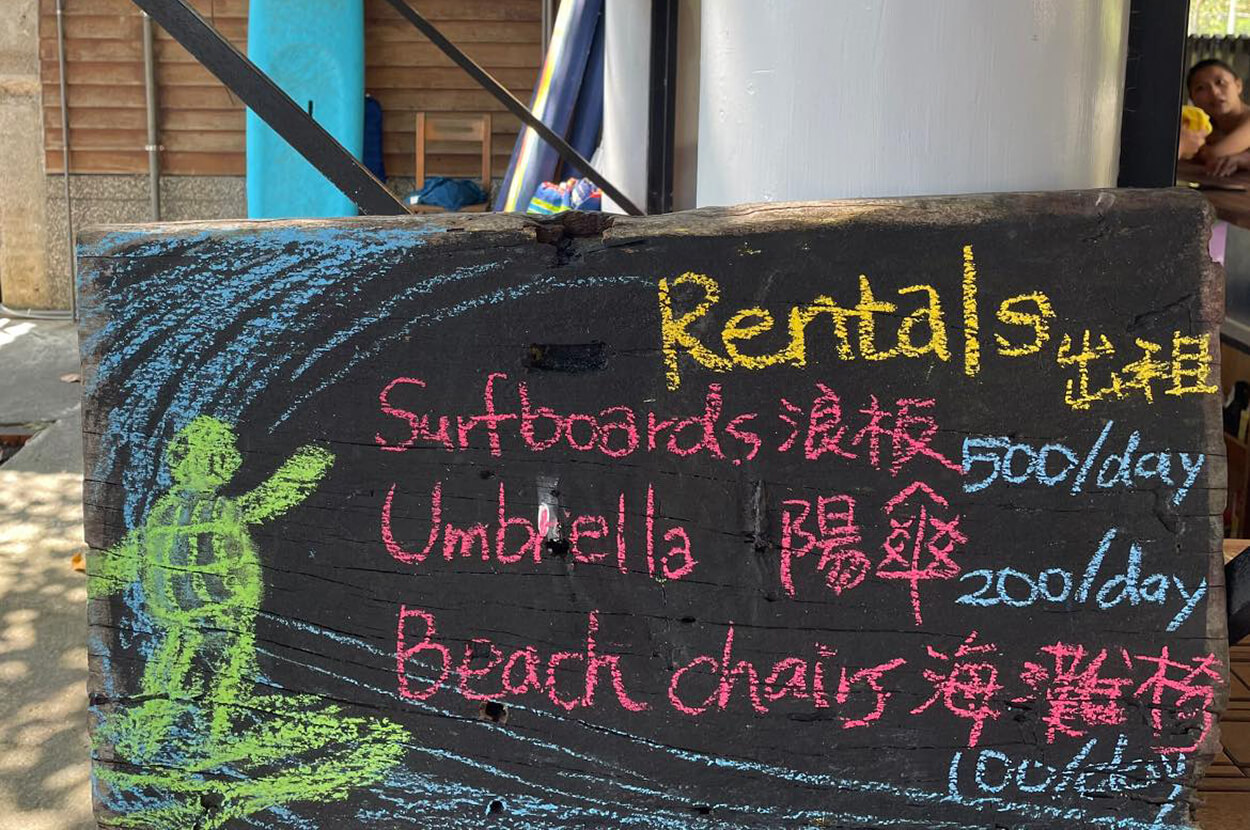 Rentals 出租
Surfboards 浪板 500/day
Umbrella 陽傘 200/day
Beach chairs 海灘椅
100/day